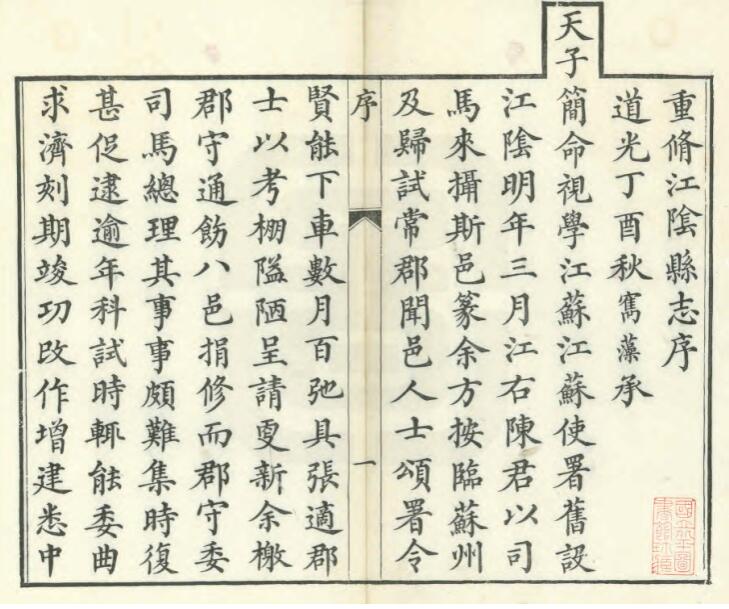 重脩江陰縣志序
道光丁酉秋寯藻承
天子簡命視學江蘇江蘇使署舊設
江陰明年三月江右陳君以司
馬來攝斯邑篆余方按臨蘇州
及歸試常郡聞邑人士頌署令
序
一
賢能下車數月百弛具張適郡
士以考棚隘陋呈請更新余檄
郡守通飭八邑捐修而郡守委
司馬總理其事事頗難集時復
甚促逮逾年科試時輒能委曲
求濟刻期竣功改作增建悉中